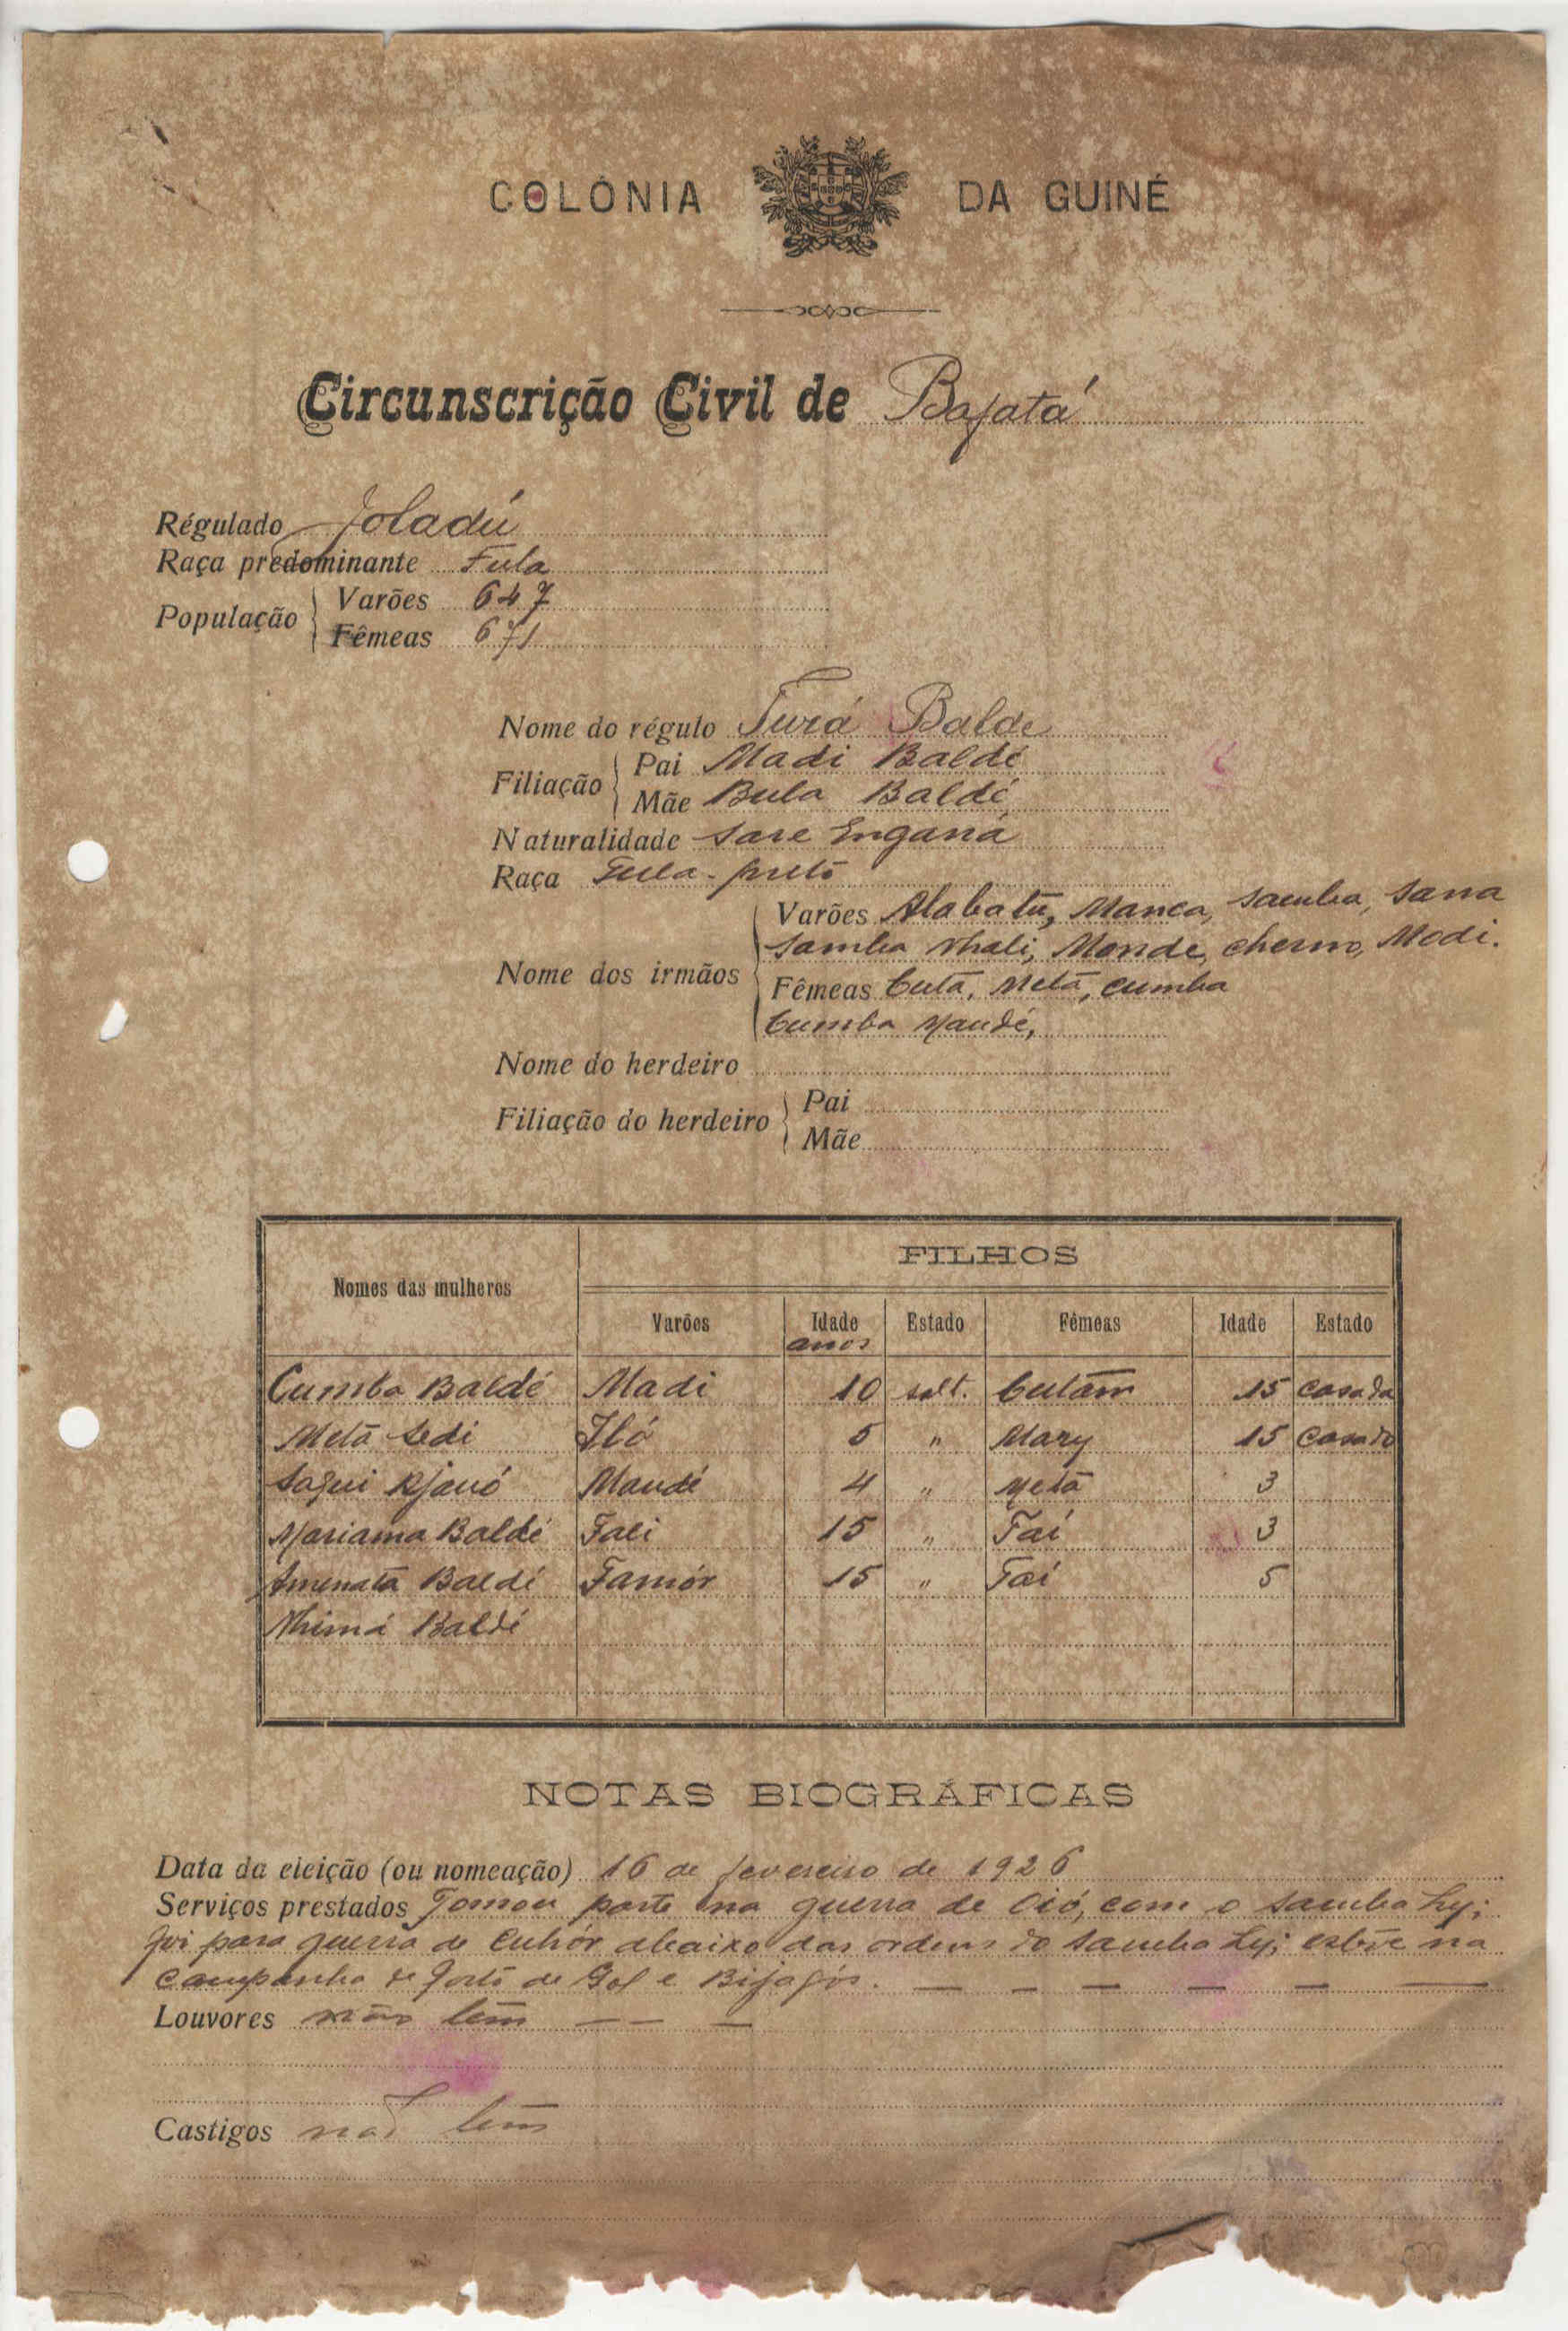 COLÓNIA DA GUINÉ
Circunscrição Civil de Bafatá
Régulado Joladú
Raça predominante Fula
População Varões 647
Fêmeas 671
Nome do régulo Turá Balde
Filiação Pai Madi Baldé
Mãe Bula Baldé
Naturalidade Sare Enganá
Raça Fula-preto
Nome dos irmãos Varões Alabatú, Manca, Samba, Sana
Samba Mali, Monde, Cherno, Modi.
Fêmeas Cutã, Metã, Cumba
Cumba Maudé,
Nome do herdeiro
Filiação do herdeiro Pai
Mãe
Nomes das mulheres FILHOS
Varões Idade anos Estado Fêmeas Idade Estado
Cumba Baldé Madi 10 solt. Cutãm 15 casada
Metã Sedi Iló 5 " Mary 15 casado
Djauó Maudé 4 " Metã 3
Mariama Baldé Fali 15 " Taí 3
Amenatã Baldé Famór 15 " Taí 5
Nhimá Baldé
NOTAS BIOGRÁFICAS
Data da eleição (ou nomeação) 16 de fevereiro de 1926
Serviços prestados Tomou parte na guerra de Oió, com o Samba Ly;
foi para guerra de Cuhór abaixo das ordens do Samba Ly; estêve na
campanha de de e Bijagós. — — — — — —
Louvores não tem — — —
Castigos não tem